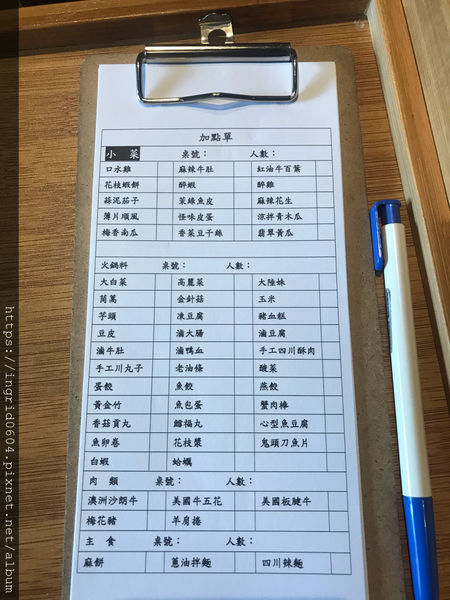 加點單
小 菜 桌號： 人數：
口水雞 麻辣牛肚 紅油牛百葉
花枝蝦餅 醉蝦 醉雞
蒜泥茄子 蔥綠魚皮 麻辣花生
薄片順風 怪味皮蛋 涼拌青木瓜
梅香南瓜 香菜豆干絲 翡翠黃瓜
火鍋料 桌號： 人數：
大白菜 高麗菜 大陸妹
茼蒿 金針菇 玉米
芋頭 凍豆腐 豬血糕
豆皮 滷大腸 滷豆腐
滷牛肚 滷鴨血 手工四川酥肉
手工川丸子 老油條 酸菜
蛋餃 魚餃 燕餃
黃金竹 魚包蛋 蟹肉棒
香菇貢丸 鱈福丸 心型魚豆腐
魚卵卷 花枝漿 鬼頭刀魚片
白蝦 蛤蠣
肉 類 桌號： 人數：
澳洲沙朗牛 美國牛五花 美國板腱牛
梅花豬 羊肩捲
主 食 桌號： 人數：
麻餅 蔥油拌麵 四川辣麵
https://ingrid0604.pixnet.net/album